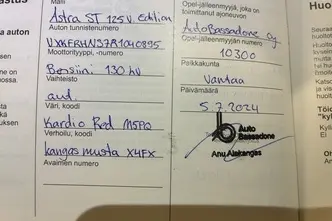 Malli
Astra ST 125V. Edition
Auton tunnistenumero
Moottorityyppi, -numero
Bensiini 130 hv
Vaihteisto
aut
Väri, koodi
Kardio Red M5P0
Verhoilu, koodi
kangas musta X4FX
Avaimen numero
Opel-jälleenmyyjä, joka on
toimittanut ajoneuvon
AutoBassadone Oy
Opel-jälleenmyyjän numero
10300
Paikkakunta
Vantaa
Päivämäärä
5.7.2024
Auto
Bassadone
Anu Alakangas